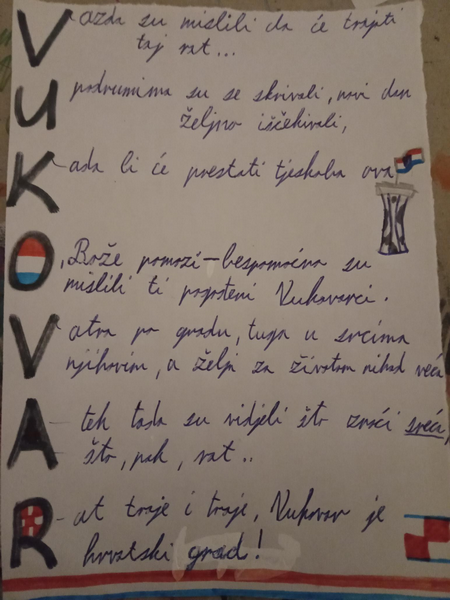 Vazda su mislili da će trajati
taj rat...
U podrumima su se skrivali, novi dan
željno iščekivali,
Kada li će prestati tjeskoba ova
O, Bože pomozi – bespomoćno su
mislili ti pogođeni Vukovarci.
Vatra po gradu, tuga u srcima
njihovim, a želja za životom nikad veća
A - tek tada su vidjeli što znači sreća,
što, pak, rat..
R-at traje i traje, Vukovar je
hrvatski grad!